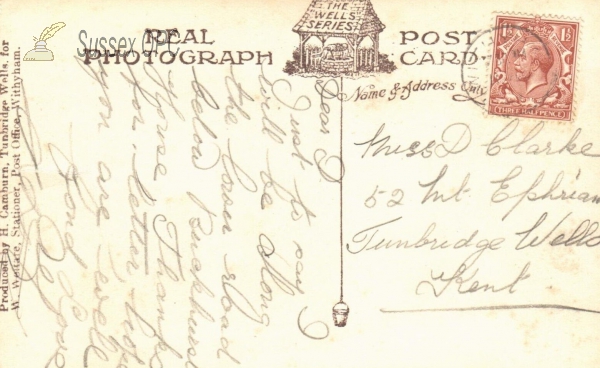 Sussex OPC
REAL PHOTOGRAPH
THE
WELLS
SERIES
POST
CARD
Name & Address Only
1½ 1½
THREE HALFPENCE
Produced by H. Camburn, Tunbridge Wells, for
W. Wellfare, Stationer, Post Office, Withyham.
Miss D Clarke
52 Mt Ephriam
Tunbridge Wells
Kent
Dear D
Just to say I
will be along
the lower road
below Buckhurst
House, Thanks
for letter hope
you are well
Fond